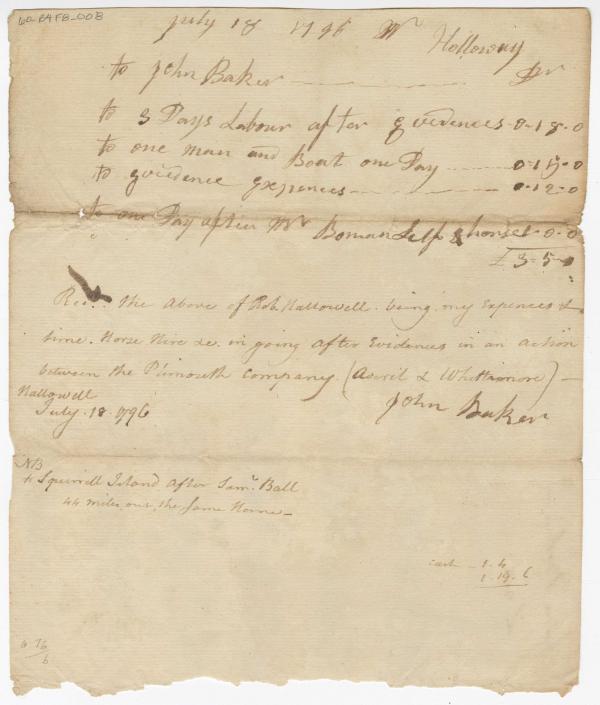 60 B4F8_008
July 18 1796 Mr Holloway
to John Baker Dr
to 3 Days Labour after Evidences 0-18-0
to one man and Boat one Day 0-15-0
to Evidence Expences 0-12-0
to one Day after Mr Boman Self & horse 1-0-0
£3-5-0
Recd. the above of Rob. Hallowell. being my Expences &
time. Horse Hire &c. in going after Evidences in an action
between the Plimouth Company. (Averil & Whittimore)
Hallowell
July. 18. 1796
John Baker
NB
to Squirrell Island after Saml. Ball
44 miles out, the same Home
cash 1.4
1.19.6